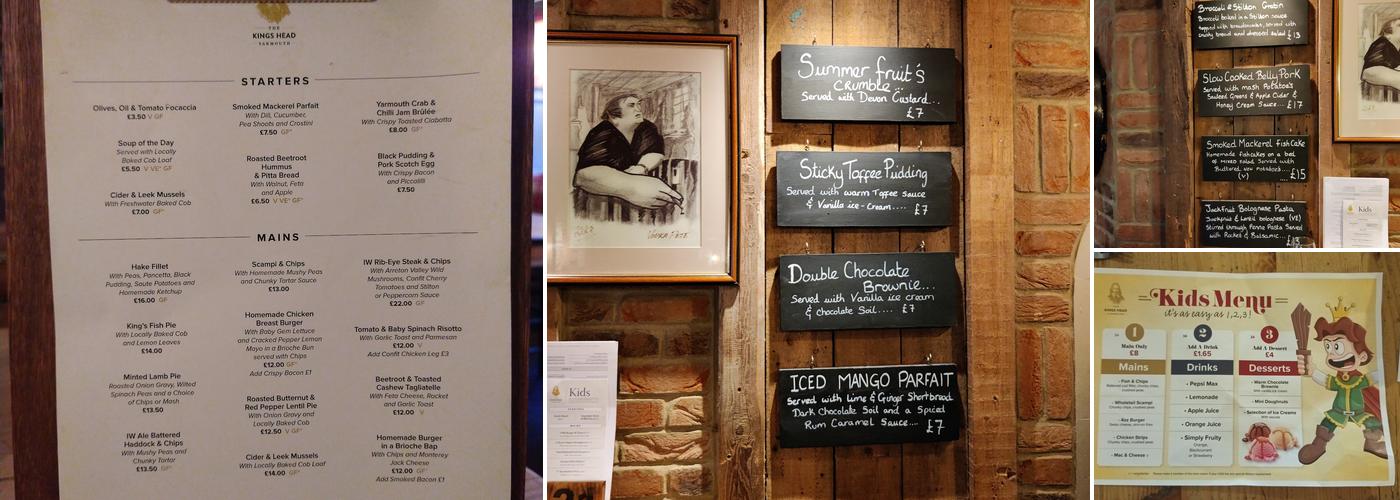 THE
KINGS HEAD
YARMOUTH
STARTERS
Olives, Oil & Tomato Focaccia
£3.50 V GF
Soup of the Day
Served with Locally
Baked Cob Loaf
£5.50 V VE* GF*
Cider & Leek Mussels
With Freshwater Baked Cob
£7.00 GF*
Smoked Mackerel Parfait
With Dill, Cucumber,
Pea Shoots and Crostini
£7.50 GF*
Roasted Beetroot
Hummus
& Pitta Bread
With Walnut, Feta
and Apple
£6.50 V VE* GF*
Yarmouth Crab &
Chilli Jam Brûlée
With Crispy Toasted Ciabatta
£8.00 GF*
Black Pudding &
Pork Scotch Egg
With Crispy Bacon
and Piccalilli
£7.50
MAINS
Hake Fillet
With Peas, Pancetta, Black
Pudding, Saute Potatoes and
Homemade Ketchup
£16.00 GF
King's Fish Pie
With Locally Baked Cob
and Lemon Leaves
£14.00
Minted Lamb Pie
Roasted Onion Gravy, Wilted
Spinach Peas and a Choice
of Chips or Mash
£13.50
IW Ale Battered
Haddock & Chips
With Mushy Peas and
Chunky Tartar
£13.50 GF*
Scampi & Chips
With Homemade Mushy Peas
and Chunky Tartar Sauce
£13.00
Homemade Chicken
Breast Burger
With Baby Gem Lettuce
and Cracked Pepper Lemon
Mayo in a Brioche Bun
served with Chips
£12.00 GF*
Add Crispy Bacon £1
Roasted Butternut &
Red Pepper Lentil Pie
With Onion Gravy and
Locally Baked Cob
£12.50 V GF*
Cider & Leek Mussels
With Locally Baked Cob Loaf
£14.00 GF*
IW Rib-Eye Steak & Chips
With Arreton Valley Wild
Mushrooms, Confit Cherry
Tomatoes and Stilton
or Peppercorn Sauce
£22.00 GF
Tomato & Baby Spinach Risotto
With Garlic Toast and Parmesan
£12.00 V
Add Confit Chicken Leg £3
Beetroot & Toasted
Cashew Tagliatelle
With Feta Cheese, Rocket
and Garlic Toast
£12.00 V
Homemade Burger
in a Brioche Bap
With Chips and Monterey
Jack Cheese
£12.00 GF*
Add Smoked Bacon £1
Kids
Summer fruit's
crumble...
Served with Devon Custard...
£7
Sticky Toffee Pudding
Served with warm Toffee sauce
& Vanilla ice-cream.... £7
Double Chocolate
Brownie...
Served with Vanilla ice cream
& Chocolate Soil.... £7
ICED MANGO PARFAIT
Served with Lime & Ginger Shortbread
Dark Chocolate Soil and a Spiced
Rum Caramel Sauce.... £7
Broccoli & Stilton Gratin
Broccoli baked in a Stilton sauce
topped with breadcrumbs, served with
crusty bread and dressed salad £13
Slow Cooked Belly Pork
Served with mash Potatoe's
Sauteed Greens & Apple Cider &
Honey Cream Sauce... £17
Smoked Mackerel fishCake
Homemade fishcakes on a bed
of Mixed salad Served with
Buttered new Potatoes...
(v) .... £15
Jackfruit Bolognase Pasta
Jackfruit & Lentil bolognese (VE)
Stirred through Penne Pasta Served
with Rocket & Balsamic...
£13
KINGS HEAD
Kids Menu
it's as easy as 1,2,3!
1
Main Only
£8
Mains
• Fish & Chips
• Wholetail Scampi
Chunky chips, crushed peas
• 4oz Burger
• Chicken Strips
Chunky chips, crushed peas
• Mac & Cheese
2
Add A Drink
£1.65
Drinks
• Pepsi Max
• Lemonade
• Apple Juice
• Orange Juice
• Simply Fruity
Orange,
Blackcurrant
or Strawberry
3
Add A Dessert
£4
Desserts
• Warm Chocolate
Brownie
• Mini Doughnuts
• Selection of Ice Creams